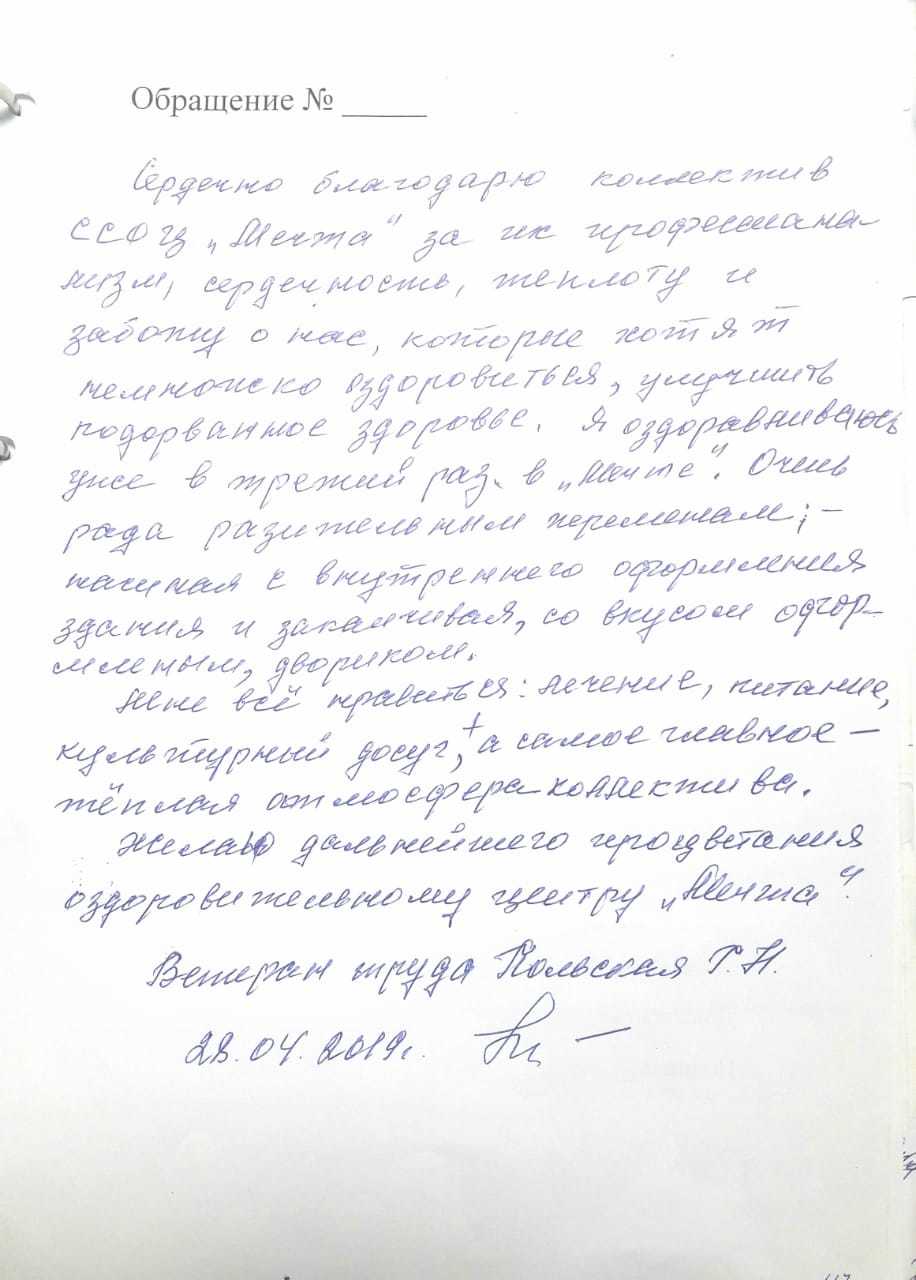 Обращение № _____
Сердечно благодарю коллектив
ССОЦ „Мечта" за их профессиона-
лизм, сердечность, теплоту и
заботу о нас, которые хотят
немножко оздоровиться, улучшить
подорванное здоровье. Я оздоравниваюсь
уже в третий раз в „Мечте". Очень
рада разительным переменам; -
начиная с внутреннего оформления
здания и заканчивая, со вкусом офор-
мленым, двориком.
Мне всё нравиться: лечение, питание,
культурный досуг, + а самое главное —
тёплая атмосфера коллектива.
Желаю дальнейшего процветания
оздоровительному центру „Мечта".
Ветеран труда Польская Г.Н.
23.04.2019г.